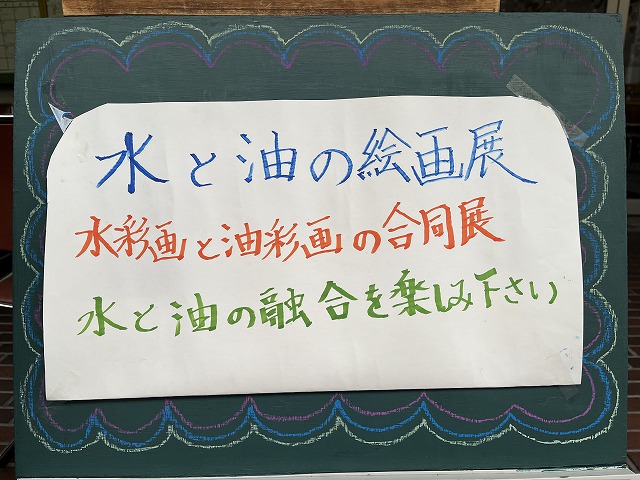 水と油の絵画展
水彩画と油彩画の合同展
水と油の融合を楽しみ下さい